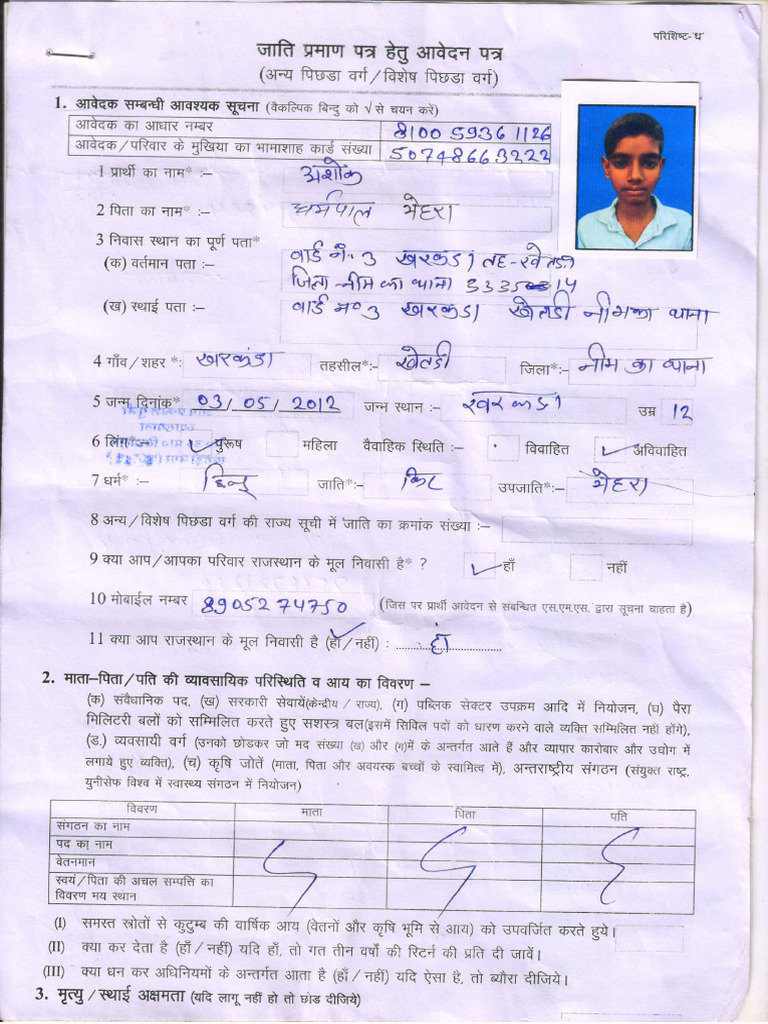 परिशिष्ट-'घ'
जाति प्रमाण पत्र हेतु आवेदन पत्र
(अन्य पिछडा वर्ग/विशेष पिछडा वर्ग)
1. आवेदक सम्बन्धी आवश्यक सूचना (वैकल्पिक बिन्दु को √ से चयन करें)
आवेदक का आधार नम्बर 8100 5936 1126
आवेदक/परिवार के मुखिया का भामाशाह कार्ड संख्या 50748663222
1 प्रार्थी का नाम* :– अशोक
2 पिता का नाम* :– धर्मपाल मेहरा
3 निवास स्थान का पूर्ण पता*
(क) वर्तमान पता :– वार्ड नं. 3 खरकडा तह-खेतडी
जिला-नीम का थाना
(ख) स्थाई पता :– वार्ड न० 3 खरकडा खेतडी नीमका थाना
4 गाँव/शहर *: खरकंडा तहसील*:– खेतडी जिला*:– नीम का थाना
5 जन्म दिनांक* 03/05/2012 जन्म स्थान :– खरकडा उम्र 12
6 लिंग*:– पुरूष महिला वैवाहिक स्थिति :– विवाहित अविवाहित
7 धर्म* :– हिन्दू जाति*:– उपजाति*:– मेहरा
8 अन्य/विशेष पिछडा वर्ग की राज्य सूची में जाति का क्रमांक संख्या :–
9 क्या आप/आपका परिवार राजस्थान के मूल निवासी है* ? हाँ नहीं
10 मोबाईल नम्बर 8905274750 (जिस पर प्रार्थी आवेदन से संबन्धित एस.एम.एस. द्वारा सूचना चाहता है)
11 क्या आप राजस्थान के मूल निवासी है (हाँ/नहीं) : हां
2. माता–पिता/पति की व्यावसायिक परिस्थिति व आय का विवरण –
(क) संवैधानिक पद, (ख) सरकारी सेवायें(केन्द्रीय / राज्य), (ग) पब्लिक सेक्टर उपक्रम आदि में नियोजन, (घ) पैरा
मिलिटरी बलों को सम्मिलित करते हुए सशस्त्र बल(इसमें सिविल पदों को धारण करने वाले व्यक्ति सम्मिलित नहीं होंगे),
(ड.) व्यवसायी वर्ग (उनको छोडकर जो मद संख्या (ख) और (ग)में के अन्तर्गत आते हैं और व्यापार कारोबार और उधोग में
लगाये हुए व्यक्ति), (च) कृषि जोतें (माता, पिता और अवयस्क बच्चों के स्वामित्व में), अन्तराष्ट्रीय संगठन (संयुक्त राष्ट्र,
युनीसेफ विश्व में स्वास्थ्य संगठन में नियोजन)
विवरण माता पिता पति
संगठन का नाम
पद का नाम
वेतनमान
स्वयं/पिता की अचल सम्पत्ति का
विवरण मय स्थान
(I) समस्त स्रोतों से कुटुम्ब की वार्षिक आय (वेतनों और कृषि भूमि से आय) को उपवर्जित करते हुये।
(II) क्या कर देता है (हाँ/नहीं) यदि हाँ, तो गत तीन वर्षों की रिटर्न की प्रति दी जावें।
(III) क्या धन कर अधिनियमों के अन्तर्गत आता है (हाँ/नहीं) यदि ऐसा है, तो ब्यौरा दीजिये।
3. मृत्यु/स्थाई अक्षमता (यदि लागू नहीं हो तो छांड दीजिये)